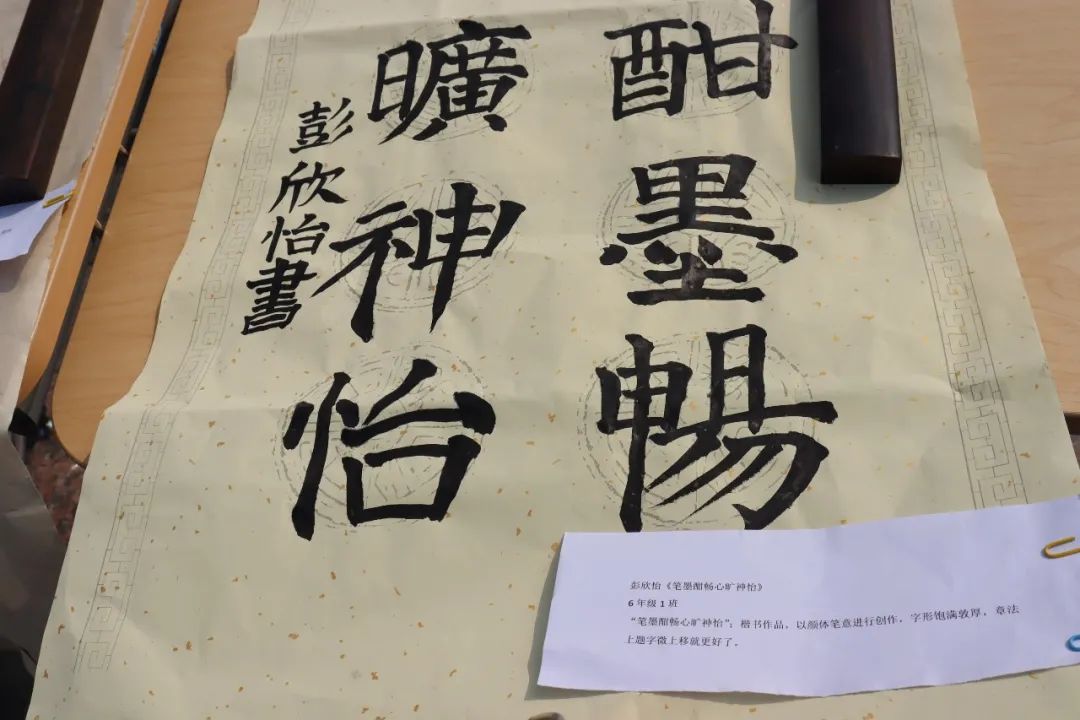 酣墨暢
曠神怡
彭欣怡書
彭欣怡《笔墨酣畅心旷神怡》
6 年级 1 班
“笔墨酣畅心旷神怡”：楷书作品，以颜体笔意进行创作，字形饱满敦厚，章法
上题字微上移就更好了。